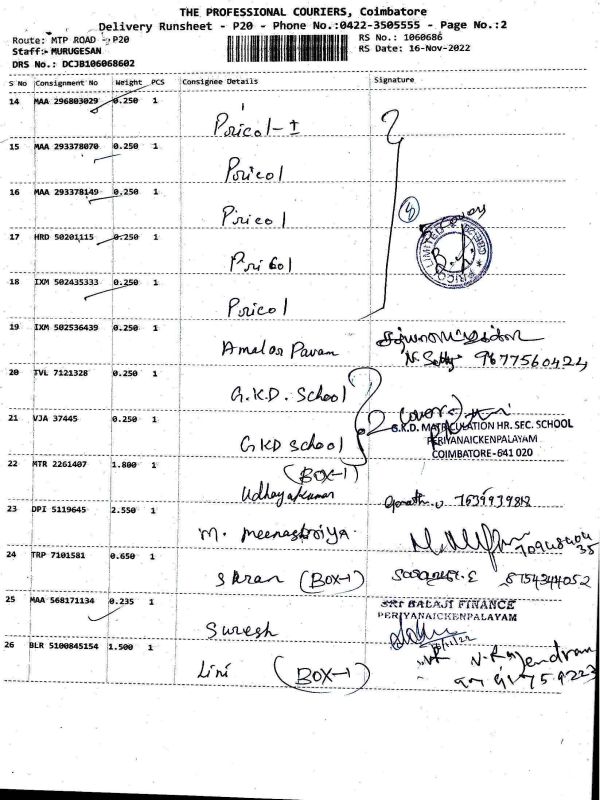 THE PROFESSIONAL COURIERS, Coimbatore
Delivery Runsheet - P20 - Phone No.:0422-3505555 - Page No.:2
Route: MTP ROAD - P20
RS No.: 1060686
Staff:- MURUGESAN
RS Date: 16-Nov-2022
DRS No.: DCJB106068602
S No Consignment No Weight PCS Consignee Details Signature
14 MAA 296803029 0.250 1 Pricol-I
15 MAA 293378070 0.250 1 Pricol
16 MAA 293378149 0.250 1 Pricol
17 HRD 50201115 0.250 1 Pricol
PRICOL LIMITED
18 IXM 502435333 0.250 1 Pricol
19 IXM 502536439 0.250 1 Amalor Pavam
9677560424
20 TVL 7121328 0.250 1 G.K.D. School
21 VJA 37445 0.250 1 GKD School
G.K.D. MATRICULATION HR. SEC. SCHOOL
PERIYANAICKENPALAYAM
COIMBATORE-641 020
22 MTR 2261407 1.800 1 (BOX-1)
Udhayakumar
23 DPI 5119645 2.550 1
24 TRP 7101581 0.650 1 (BOX-1)
8754344052
25 MAA 568171134 0.235 1 Suresh
SRI BALAJI FINANCE
PERIYANAICKENPALAYAM
26 BLR 5100845154 1.500 1 Lini (BOX-1)
N. Rajendran